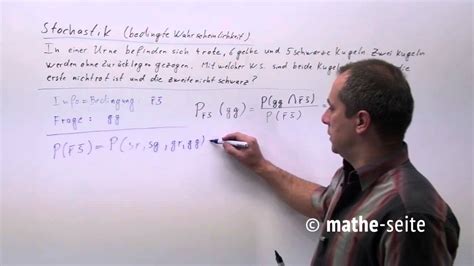 Stochastik (bedingte Wahrscheinlichkeit)
In einer Urne befinden sich 4 rote, 6 gelbe und 5 schwarze Kugeln. Zwei Kugeln
werden ohne Zurücklegen gezogen. Mit welcher W.S. sind beide Kugeln
erste nicht rot ist und die zweite nicht schwarz?
Info = Bedingung : r̄s̄
Frage : gg
P r̄s̄ (gg) = P(gg ∩ r̄s̄) / P(r̄s̄)
P(r̄s̄) = P(sr, sg, gr, gg)
© mathe-seite